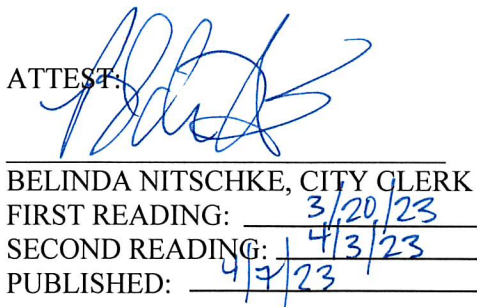 ATTEST:
BELINDA NITSCHKE, CITY CLERK
FIRST READING: 3/20/23
SECOND READING: 4/3/23
PUBLISHED: 4/7/23